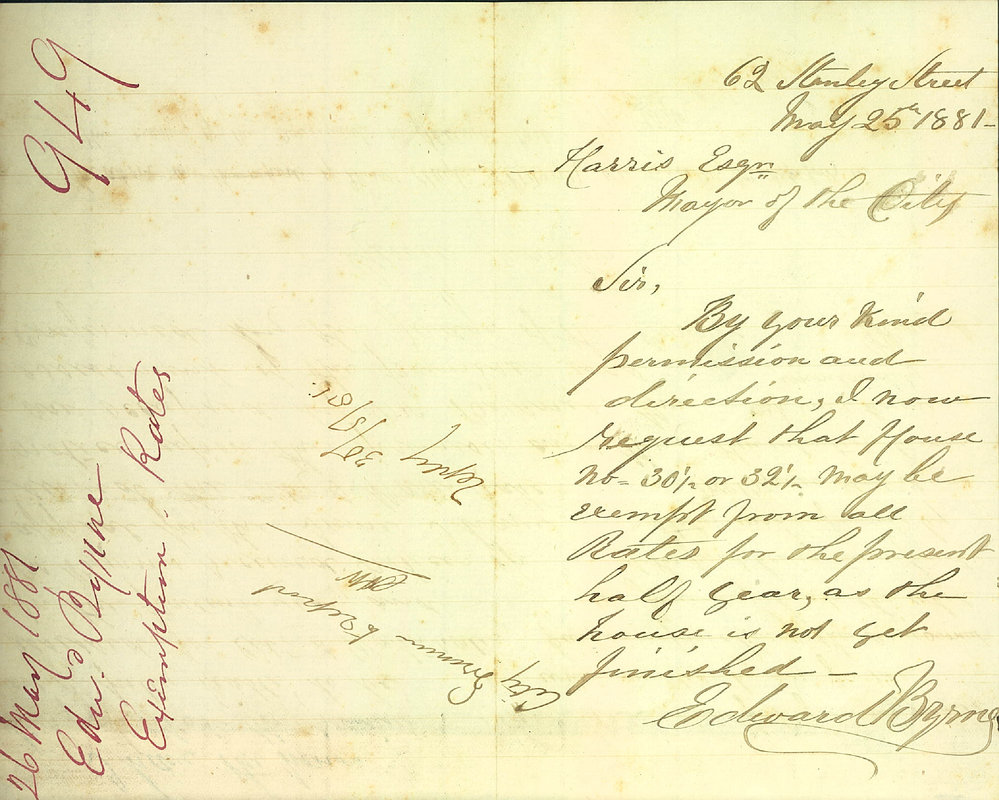 62 Stanley Street
May 25th 1881-
Harris Esqr
Mayor of the City
Sir,
By your kind
permission and
direction, I now
request that House
no- 30½ or 32½ may be
exempt from all
Rates for the present
half year, as the
house is not yet
finished —
Edward Byrne
949
26 May 1881
Edwd. Byrne
Exemption Rates
City